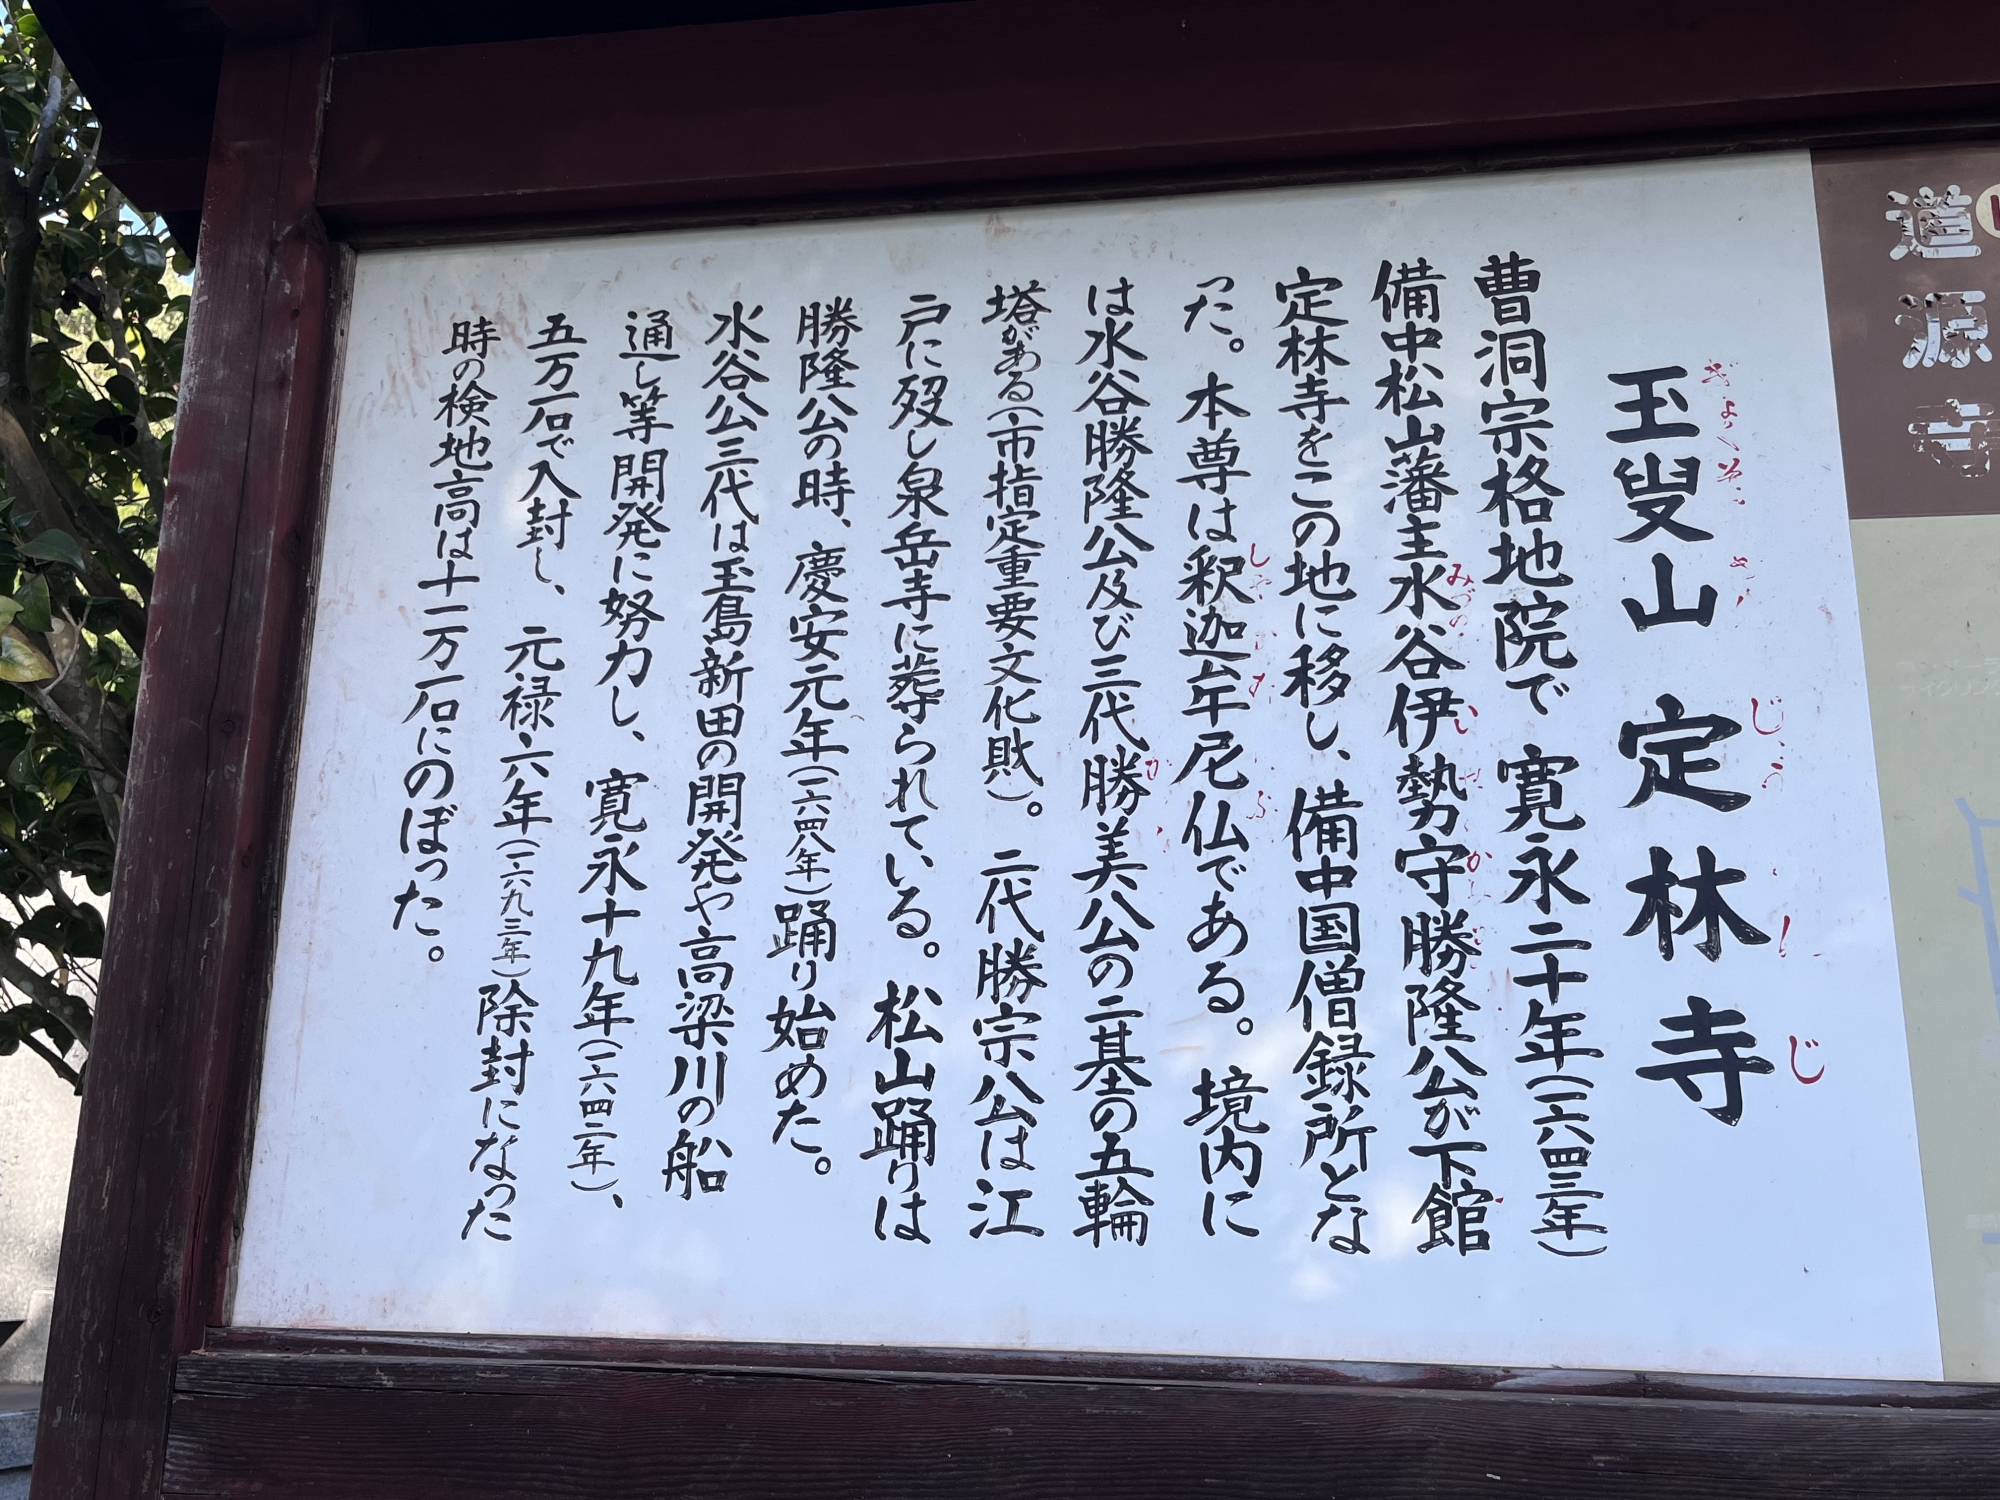 玉叟山 定林寺
曹洞宗格地院で 寛永二十年(一六四三年)
備中松山藩主水谷伊勢守勝隆公が下館
定林寺をこの地に移し、備中国僧録所とな
った。本尊は釈迦牟尼仏である。境内に
は水谷勝隆公及び三代勝美公の二基の五輪
塔がある(市指定重要文化財)。二代勝宗公は江
戸に歿し泉岳寺に葬られている。松山踊りは
勝隆公の時、慶安元年(一六四八年)踊り始めた。
水谷公三代は玉島新田の開発や高梁川の船
通し等開発に努力し、寛永十九年(一六四二年)、
五万石で入封し、元禄六年(一六九三年)除封になった
時の検地高は十一万石にのぼった。
道源寺